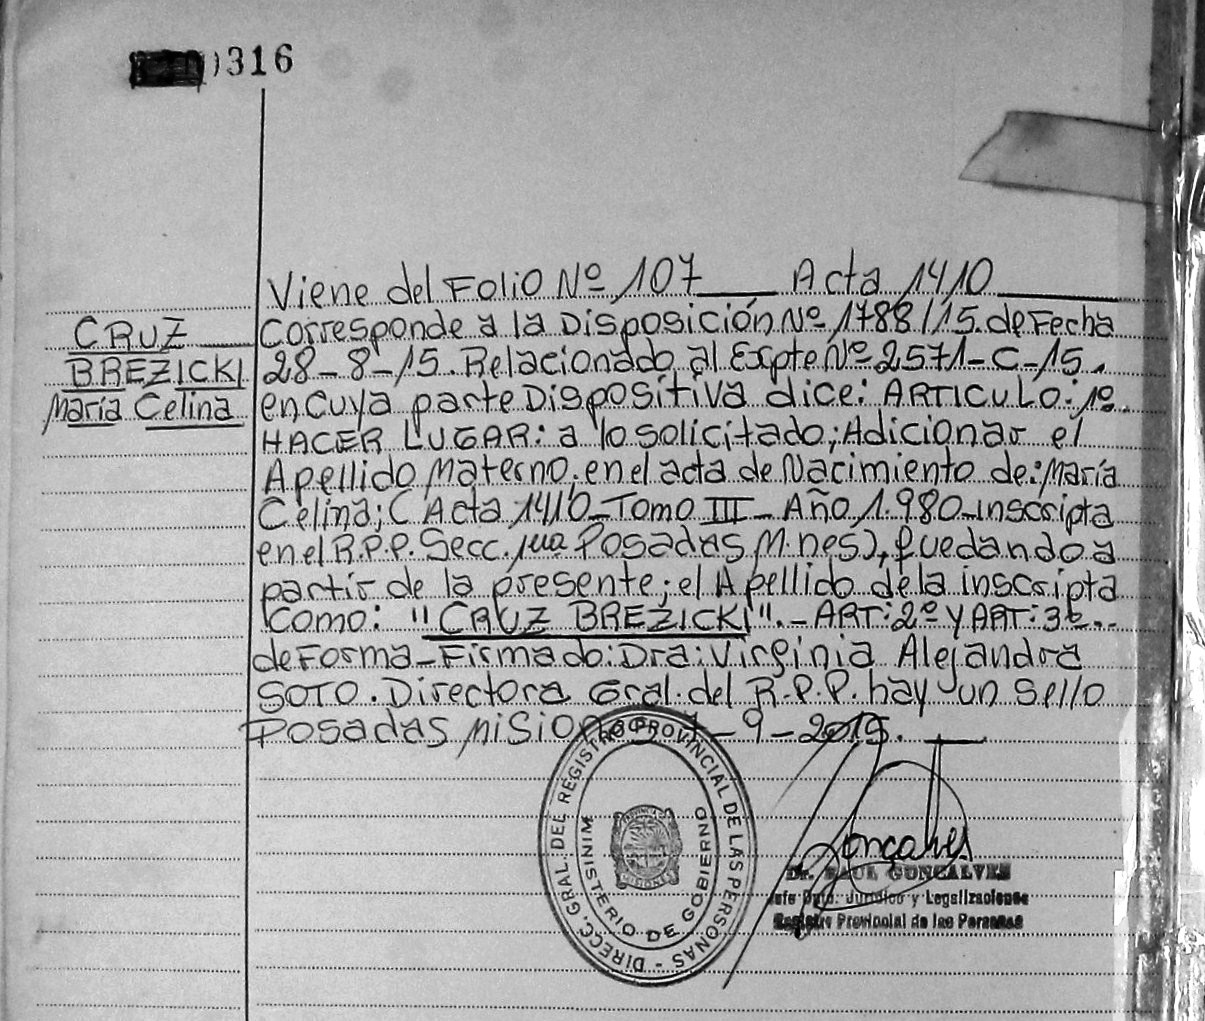 316
Viene del Folio Nº 107 Acta 1410
CRUZ
BREZICKI
María Celina
Corresponde a la Disposición Nº 1788/15. de Fecha
28-8-15. Relacionado al Expte Nº 2571-C-15.
en cuya parte Dispositiva dice: ARTICULO: 1º.
HACER LUGAR: a lo solicitado; Adicionar el
Apellido Materno. en el acta de Nacimiento de: María
Celina; (Acta 1410-Tomo III- Año 1.980-inscripta
en el R.P.P. Secc. 1ra Posadas M.nes), quedando a
partir de la presente; el Apellido de la inscripta
como: "CRUZ BREZICKI".- ART: 2º y ART: 3º..
de Forma-Firmado: Dra: Virginia Alejandra
SOTO. Directora Gral. del R.P.P. hay un sello
POSADAS MISIONES -9-2015.
DIRECC. GRAL. DEL REGISTRO PROVINCIAL DE LAS PERSONAS -
MINISTERIO DE GOBIERNO
PROVINCIA DE
MISIONES
Gonçalves
Dr. RAUL GONCALVES
Jefe Dpto. Jurídico y Legalizaciones
Registro Provincial de las Personas